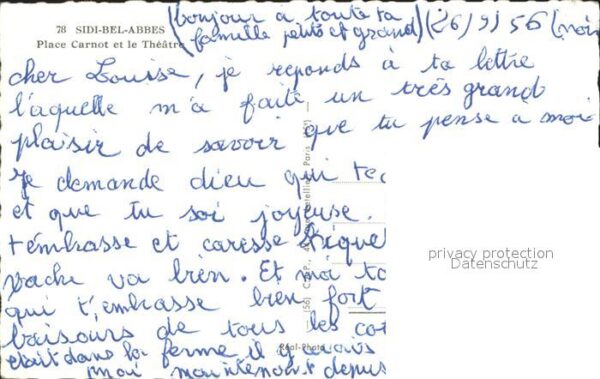 78 SIDI-BEL-ABBES
Place Carnot et le Théâtre
(bonjour à toute ta
famille petit et grand)
(26/9/56 (moi
cher Louise, je reponds à ta lettre
l'aquelle m'a faite un très grand
plaisir de savoir que tu pense a moi
Je demande dieu qui te
et que tu soi joyeuse.
t'embrasse et caresse
vache va bien. Et moi
qui t'embrasse bien fort
baisours de tous les
etait dans la ferme il y
moi maintenant depuis
privacy protection
Datenschutz
Réal-Photo